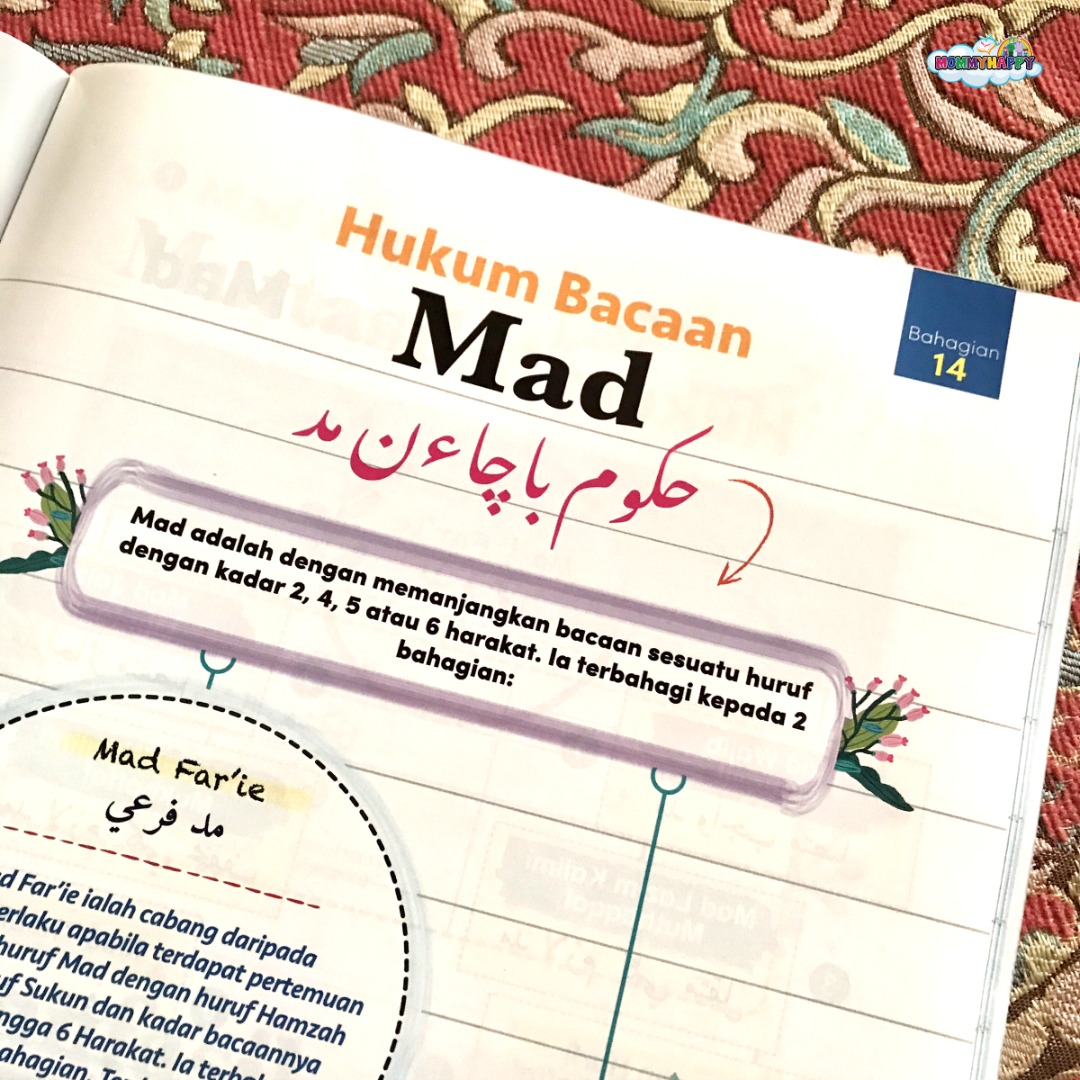 MOMMYHAPPY
Hukum Bacaan
Mad
Bahagian
14
حكوم باچاءن مد
Mad adalah dengan memanjangkan bacaan sesuatu huruf
dengan kadar 2, 4, 5 atau 6 harakat. Ia terbahagi kepada 2
bahagian:
Mad Far'ie
مد فرعي
Far'ie ialah cabang daripada
apabila terdapat pertemuan
huruf Mad dengan huruf Hamzah
Sukun dan kadar bacaannya
6 Harakat. Ia